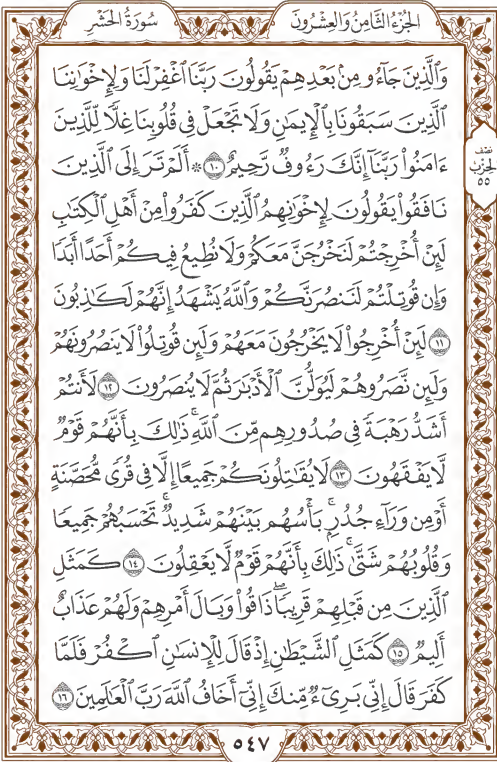 الجُزْءُ الثَّامِنُ وَالعِشْرُونَ سُورَةُ الحَشْرِ
وَٱلَّذِينَ جَآءُو مِنۢ بَعْدِهِمْ يَقُولُونَ رَبَّنَا ٱغْفِرْ لَنَا وَلِإِخْوَٰنِنَا
ٱلَّذِينَ سَبَقُونَا بِٱلْإِيمَٰنِ وَلَا تَجْعَلْ فِى قُلُوبِنَا غِلًّا لِّلَّذِينَ
ءَامَنُوا۟ رَبَّنَآ إِنَّكَ رَءُوفٌ رَّحِيمٌ ١٠ ۞ أَلَمْ تَرَ إِلَى ٱلَّذِينَ
نَافَقُوا۟ يَقُولُونَ لِإِخْوَٰنِهِمُ ٱلَّذِينَ كَفَرُوا۟ مِنْ أَهْلِ ٱلْكِتَٰبِ
لَئِنْ أُخْرِجْتُمْ لَنَخْرُجَنَّ مَعَكُمْ وَلَا نُطِيعُ فِيكُمْ أَحَدًا أَبَدًا
وَإِن قُوتِلْتُمْ لَنَنصُرَنَّكُمْ وَٱللَّهُ يَشْهَدُ إِنَّهُمْ لَكَٰذِبُونَ
١١ لَئِنْ أُخْرِجُوا۟ لَا يَخْرُجُونَ مَعَهُمْ وَلَئِن قُوتِلُوا۟ لَا يَنصُرُونَهُمْ
وَلَئِن نَّصَرُوهُمْ لَيُوَلُّنَّ ٱلْأَدْبَٰرَ ثُمَّ لَا يُنصَرُونَ ١٢ لَأَنتُمْ
أَشَدُّ رَهْبَةً فِى صُدُورِهِم مِّنَ ٱللَّهِ ۚ ذَٰلِكَ بِأَنَّهُمْ قَوْمٌ
لَّا يَفْقَهُونَ ١٣ لَا يُقَٰتِلُونَكُمْ جَمِيعًا إِلَّا فِى قُرًى مُّحَصَّنَةٍ
أَوْ مِن وَرَآءِ جُدُرٍۭ ۚ بَأْسُهُم بَيْنَهُمْ شَدِيدٌ ۚ تَحْسَبُهُمْ جَمِيعًا
وَقُلُوبُهُمْ شَتَّىٰ ۚ ذَٰلِكَ بِأَنَّهُمْ قَوْمٌ لَّا يَعْقِلُونَ ١٤ كَمَثَلِ
ٱلَّذِينَ مِن قَبْلِهِمْ قَرِيبًا ۖ ذَاقُوا۟ وَبَالَ أَمْرِهِمْ وَلَهُمْ عَذَابٌ
أَلِيمٌ ١٥ كَمَثَلِ ٱلشَّيْطَٰنِ إِذْ قَالَ لِلْإِنسَٰنِ ٱكْفُرْ فَلَمَّا
كَفَرَ قَالَ إِنِّى بَرِىٓءٌ مِّنكَ إِنِّىٓ أَخَافُ ٱللَّهَ رَبَّ ٱلْعَٰلَمِينَ ١٦
نصف
الحزب
٥٥
٥٤٧